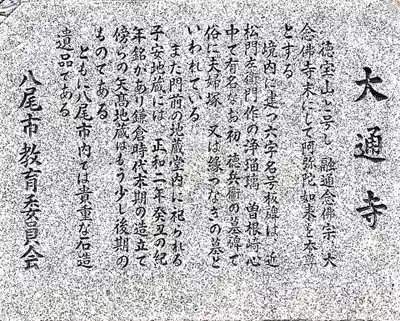 大通寺
徳宝山と号し、融通念佛宗、大
念佛寺末にして阿弥陀如来を本尊
とする。
境内に建つ六字名号板碑は、近
松門左衛門作の浄瑠璃、曽根崎心
中で有名なお初、徳兵衛の墓碑で
俗に夫婦塚、又は縁つなぎの墓と
いわれている。
また門前の地蔵堂内に祀られる
子安地蔵には、正和二年癸丑の紀
年銘があり鎌倉時代末期の造立で
傍らの矢高地蔵はもう少し後期の
ものである。
ともに八尾市内では貴重な石造
遺品である。
八尾市教育委員会